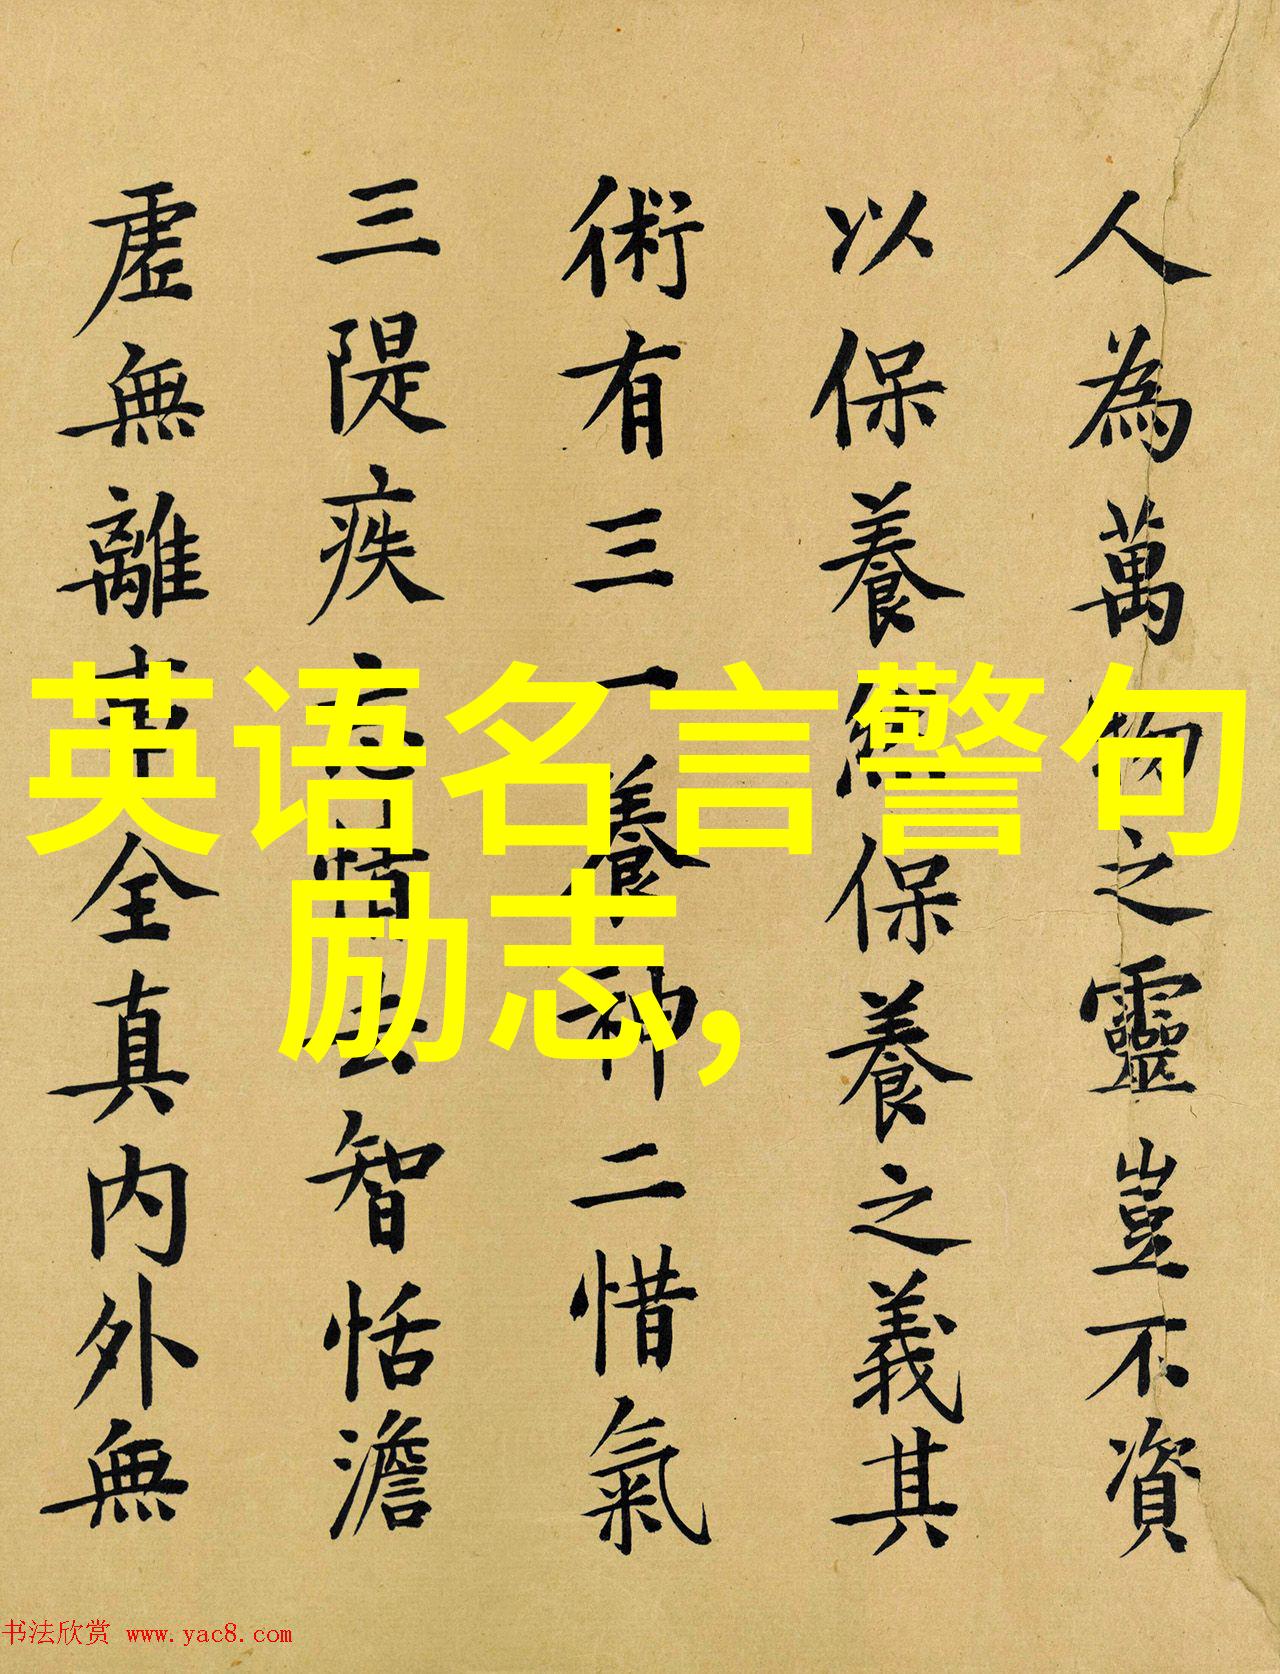 人為萬物之靈豈不資
以保養保養之義其
術有三一養神二惜氣
三隄疾忘情去智恬澹
虛無離事全真内外無
英语名言警句
励志,
书法欣赏 www.yac8.com